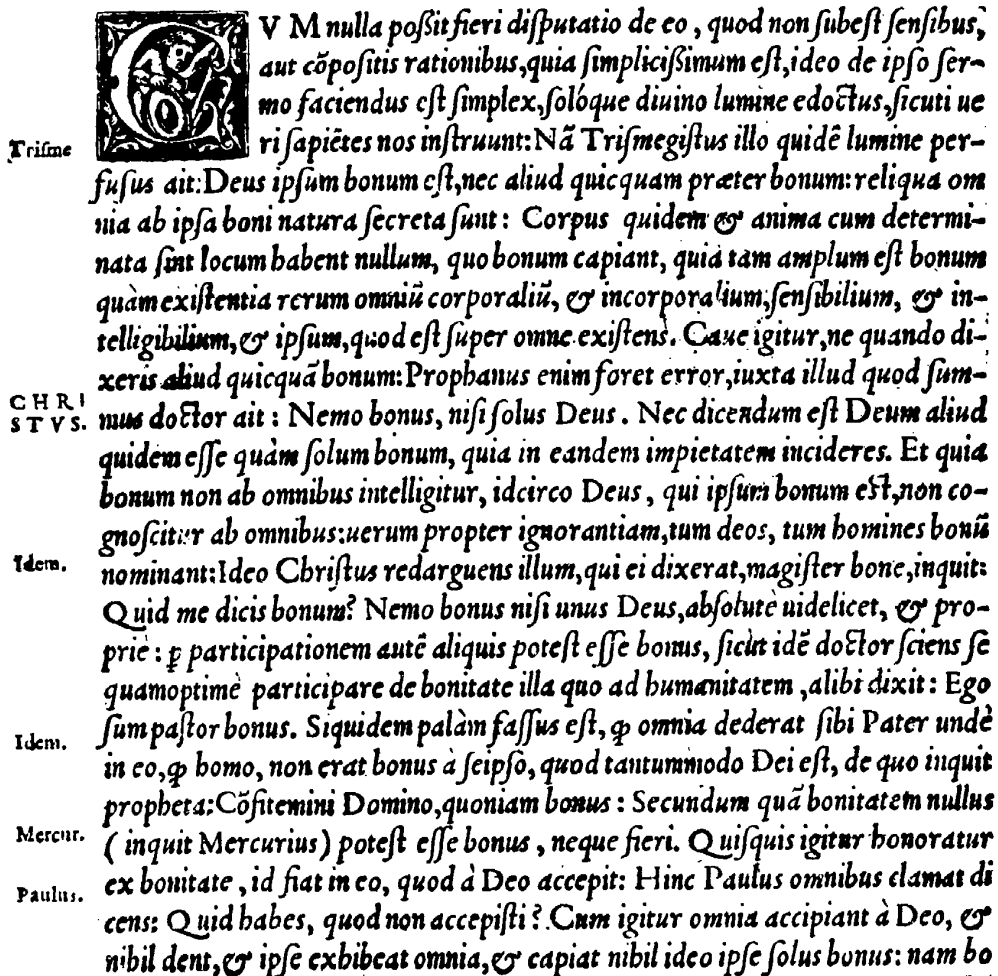 CVM nulla poßit fieri diſputatio de eo, quod non ſubeſt ſenſibus,
aut cõpoſitis rationibus, quia ſimplicißimum eſt, ideo de ipſo ſer-
mo faciendus eſt ſimplex, ſolóque diuino lumine edoctus, ſicuti ue
Triſme
ri ſapiẽtes nos inſtruunt: Nã Triſmegiſtus illo quidẽ lumine per-
fuſus ait: Deus ipſum bonum eſt, nec aliud quicquam præter bonum: reliqua om
nia ab ipſa boni natura ſecreta ſunt: Corpus quidem & anima cum determi-
nata ſint locum habent nullum, quo bonum capiant, quia tam amplum eſt bonum
quàm exiſtentia rerum omniũ corporaliũ, & incorporalium, ſenſibilium, & in-
telligibilium, & ipſum, quod eſt ſuper omne exiſtens. Caue igitur, ne quando di-
xeris aliud quicquã bonum: Prophanus enim foret error, iuxta illud quod ſum-
CHRI
STVS.
mus doctor ait: Nemo bonus, niſi ſolus Deus. Nec dicendum eſt Deum aliud
quidem eſſe quàm ſolum bonum, quia in eandem impietatem incideres. Et quia
bonum non ab omnibus intelligitur, idcirco Deus, qui ipſum bonum eſt, non co-
gnoſcitur ab omnibus: uerum propter ignorantiam, tum deos, tum homines bonũ
Idem.
nominant: Ideo Chriſtus redarguens illum, qui ei dixerat, magiſter bone, inquit:
Quid me dicis bonum? Nemo bonus niſi unus Deus, abſolutè uidelicet, & pro-
priè: ꝑ participationem autẽ aliquis poteſt eſſe bonus, ſicut idẽ doctor ſciens ſe
quamoptimè participare de bonitate illa quo ad humanitatem, alibi dixit: Ego
Idem.
ſum paſtor bonus. Siquidem palàm faſſus eſt, ꝙ omnia dederat ſibi Pater undè
in eo, ꝙ homo, non erat bonus à ſeipſo, quod tantummodo Dei eſt, de quo inquit
propheta: Cõfitemini Domino, quoniam bonus: Secundum quã bonitatem nullus
Mercur.
(inquit Mercurius) poteſt eſſe bonus, neque fieri. Quiſquis igitur honoratur
Paulus.
ex bonitate, id fiat in eo, quod à Deo accepit: Hinc Paulus omnibus clamat di
cens: Quid habes, quod non accepiſti? Cum igitur omnia accipiant à Deo, &
nihil dent, & ipſe exhibeat omnia, & capiat nihil ideo ipſe ſolus bonus: nam bo